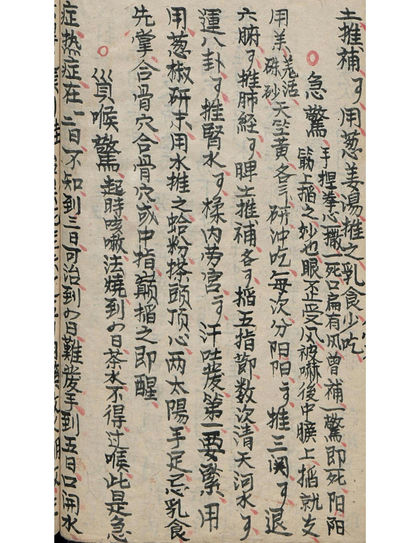 土推補 用葱姜湯推之乳食少吃
急驚 手捏拳心撒一死口扁有风曾補一驚即死陽陽
筋上掐之妙也眼不正受风被嚇後中膜上掐就支
用羌活硃砂天竺黄各三 研沖吃每次分阴阳 推三関 退
六腑 推肺經 脾土推補各 掐五指節数次清天河水
運八卦 推腎水 揉内劳宫 汗吐發第一要緊用
用葱椒研末用水推之蛤粉搽頭頂心兩太陽手足忌乳食
先掌合骨穴合骨穴或中指巔掐之即醒
喉驚 起時咳嗽法燒到 日茶水不得过喉此是急
症热症在一二日不知到三日可治到 日難發至到五日口開水